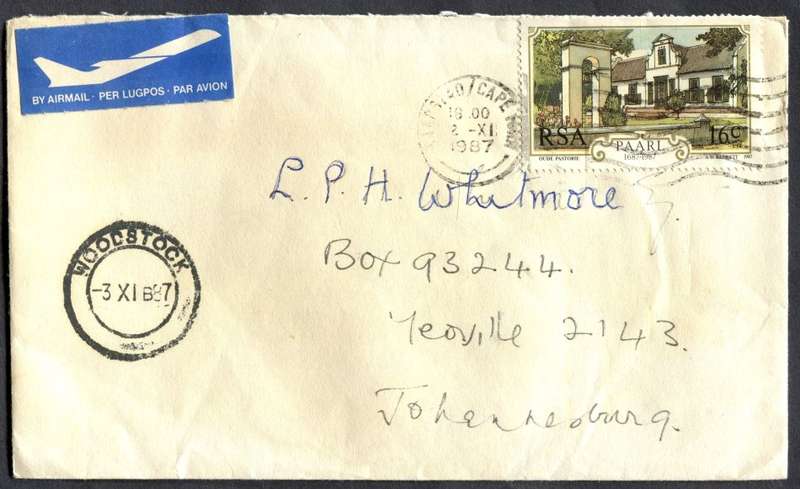 BY AIRMAIL · PER LUGPOS · PAR AVION
KAAPSTAD/CAPE TOWN
18.00
2 -XI
1987
RSA
16c
PAARL
1687-1987
OUDE PASTORIE
1987
L. P. H. Whitmore
WOODSTOCK
-3 XI B87
Box 93244.
Yeoville 2143.
Johannesburg.